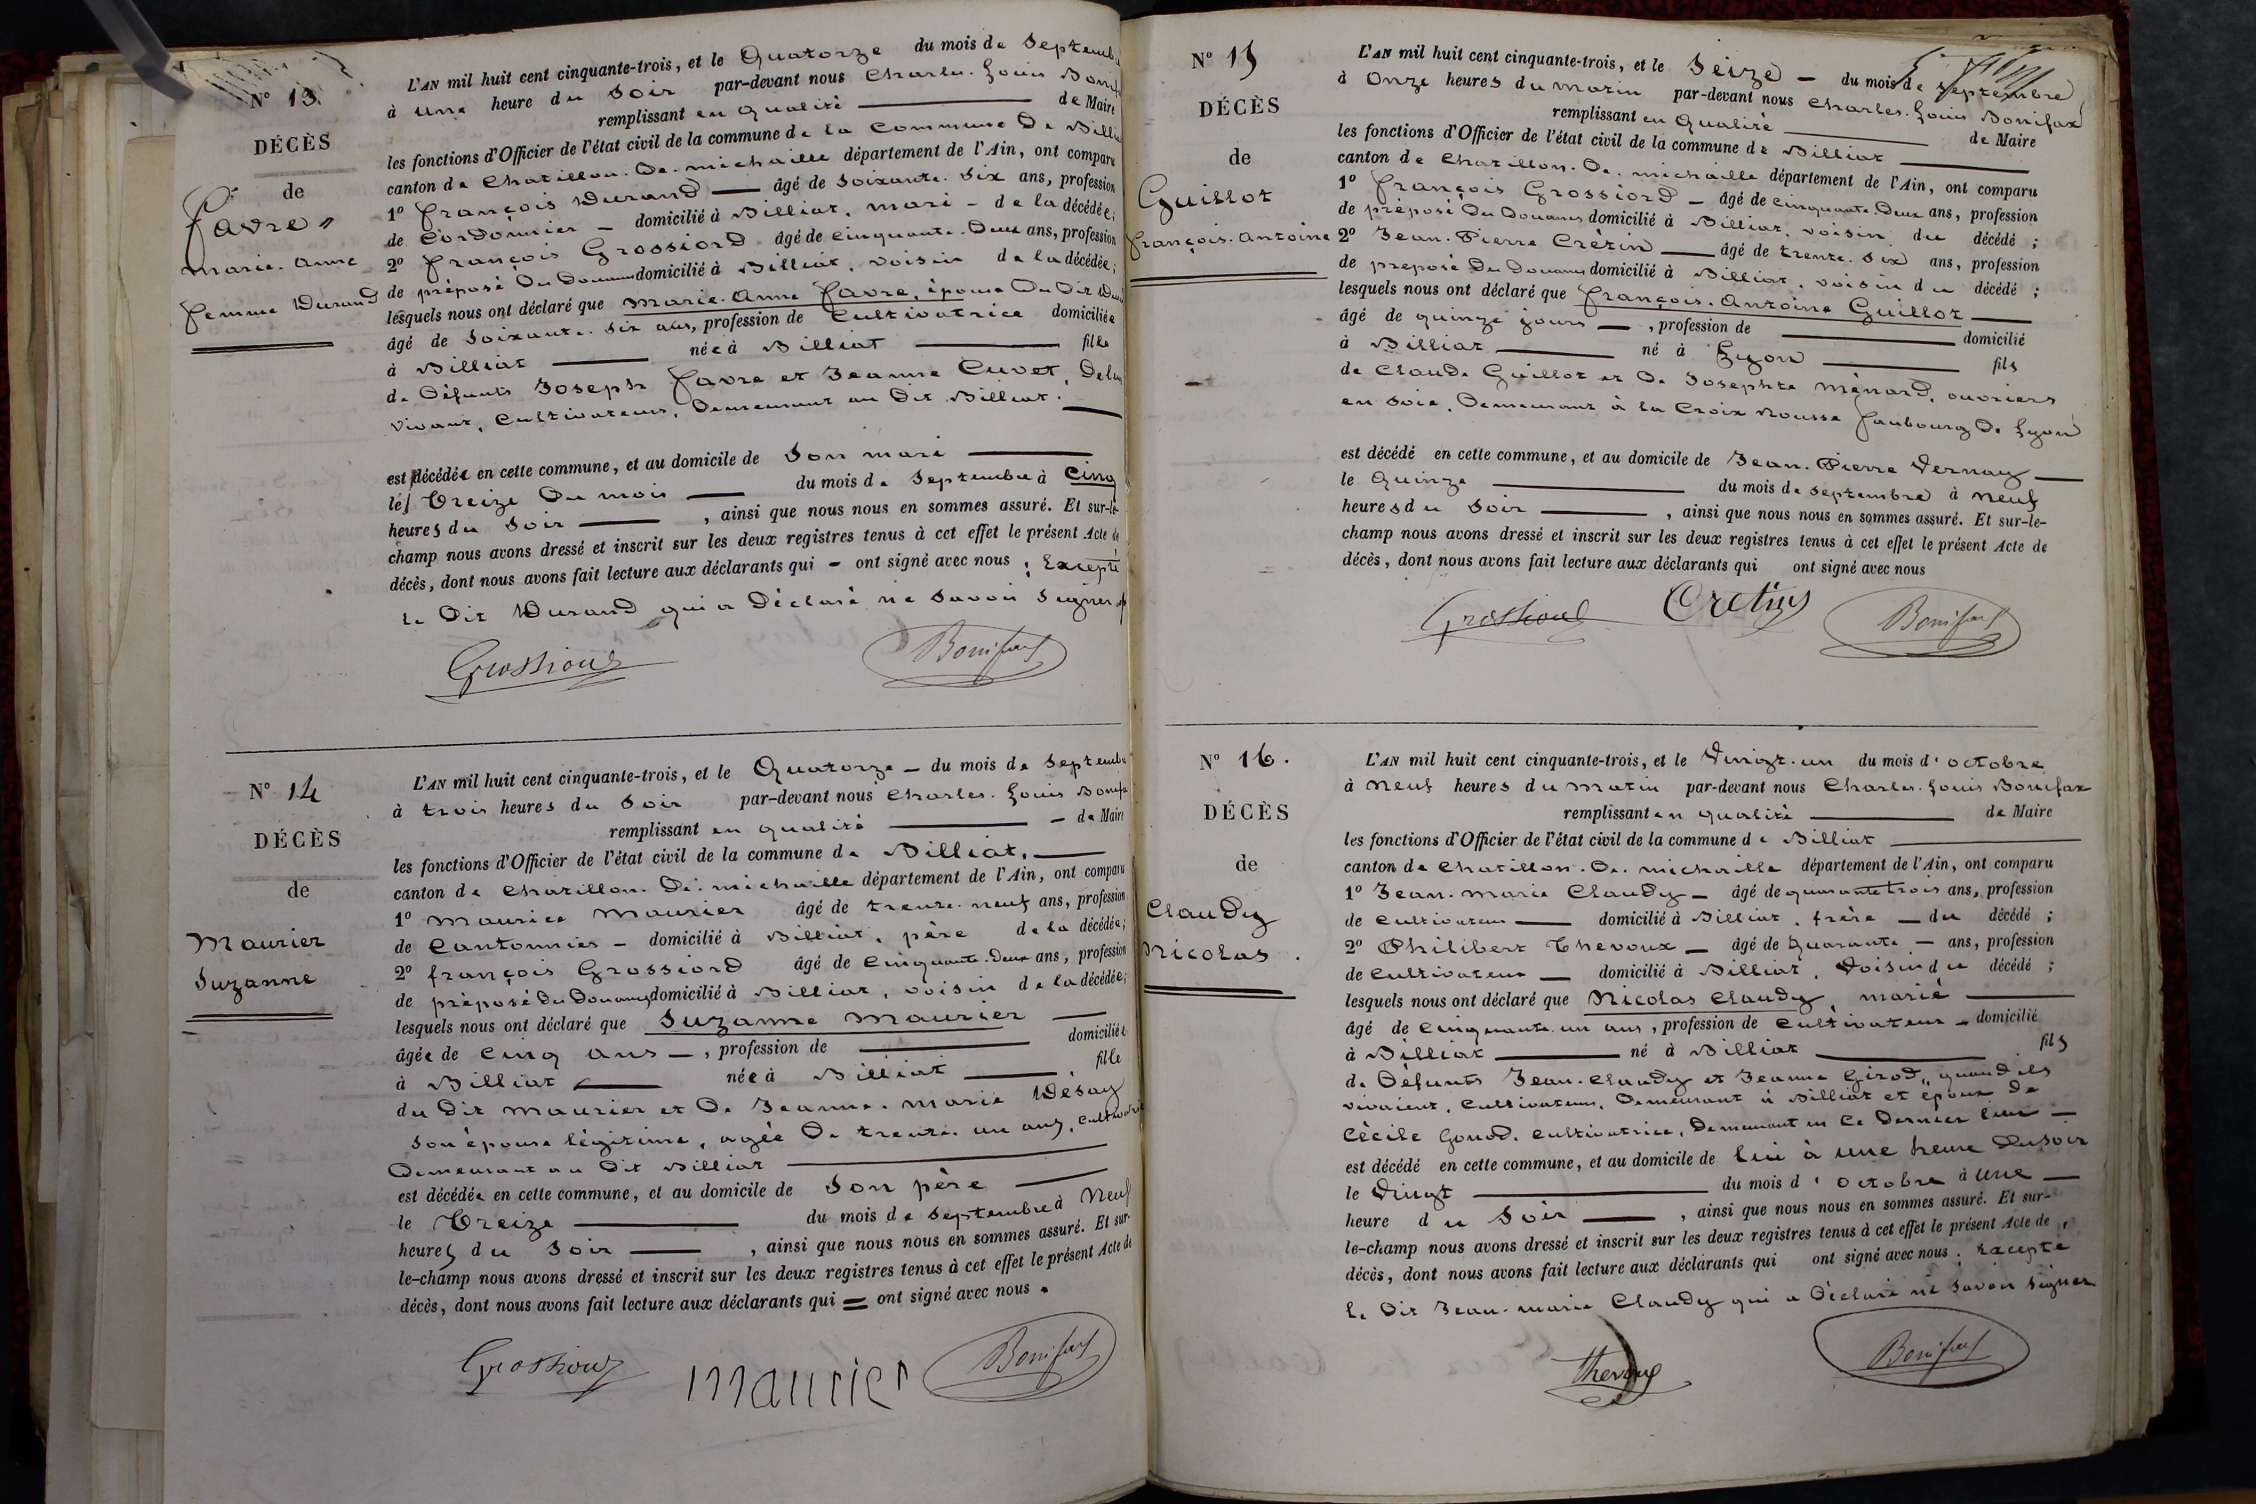 N° 13
DÉCÈS
de
Favre
Marie-Anne
femme Durand
L'AN mil huit cent cinquante-trois, et le Quatorze du mois de Septemb
à une heure du Soir par-devant nous Charles-Louis Bonif
remplissant en qualité de Maire
les fonctions d'Officier de l'état civil de la commune de la Commune De Billia
canton de Chatillon-De-michaille département de l'Ain, ont comparu
1° François Durand âgé de Soixante-Six ans, profession
de Cordonnier domicilié à Billiat, mari de la décédée;
2° François Grossiord âgé de Cinquante-Deux ans, profession
de préposé Du Douanes domicilié à Billiat, voisin de la décédée;
lesquels nous ont déclaré que Marie-Anne Favre, épouse Du Dit Du
âgé de Soixante-Six ans, profession de Cultivatrice domiciliée
à Billiat née à Billiat fille
de Défunts Joseph Favre et Jeanne Cuvet, De leur
vivant, Cultivateurs, Demeurant au Dit Billiat.
est décédée en cette commune, et au domicile de Son mari
le Treize Du mois du mois de Septembre à Cinq
heures du Soir , ainsi que nous nous en sommes assuré. Et sur-le-
champ nous avons dressé et inscrit sur les deux registres tenus à cet effet le présent Acte de
décès, dont nous avons fait lecture aux déclarants qui ont signé avec nous ; Excepté
le Dit Durand qui a Déclaré ne Savoir Signer
Grossiord Bonifax
N° 14
DÉCÈS
de
Maurier
Suzanne
L'AN mil huit cent cinquante-trois, et le Quatorze du mois de Septembr
à trois heures du Soir par-devant nous Charles-Louis Bonifa
remplissant en qualité de Maire
les fonctions d'Officier de l'état civil de la commune de Billiat,
canton de Chatillon-De-michaille département de l'Ain, ont comparu
1° Maurice Maurier âgé de trente-neuf ans, profession
de Cantonnier domicilié à Billiat, père de la décédée;
2° François Grossiord âgé de Cinquante-Deux ans, profession
de préposé Du Douanes domicilié à Billiat, voisin de la décédée;
lesquels nous ont déclaré que Suzanne Maurier
âgée de Cinq ans , profession de domiciliée
à Billiat née à Billiat fille
du Dit Maurier et De Jeanne-Marie Desay
Son épouse légitime, agée De trente-un ans, Cultivatri
Demeurant au Dit Billiat
est décédée en cette commune, et au domicile de Son père
le Treize du mois de Septembre à Neuf
heures du Soir , ainsi que nous nous en sommes assuré. Et sur-
le-champ nous avons dressé et inscrit sur les deux registres tenus à cet effet le présent Acte de
décès, dont nous avons fait lecture aux déclarants qui = ont signé avec nous.
Grossiord maurier Bonifax
N° 15
DÉCÈS
de
Guillot
François-Antoine
L'AN mil huit cent cinquante-trois, et le Seize du mois de Septembre
à Onze heures du matin par-devant nous Charles-Louis Bonifax
remplissant en Qualité de Maire
les fonctions d'Officier de l'état civil de la commune de Billiat
canton de Chatillon-De-michaille département de l'Ain, ont comparu
1° François Grossiord âgé de Cinquante-Deux ans, profession
de préposé Du Douanes domicilié à Billiat, voisin du décédé ;
2° Jean-Pierre Crétin âgé de trente-Six ans, profession
de préposé Du Douanes domicilié à Billiat, voisin du décédé ;
lesquels nous ont déclaré que François-Antoine Guillot
âgé de quinze jours , profession de domicilié
à Billiat né à Lyon fils
de Claude Guillot et De Josephte Ménard, ouvriers
en Soie, Demeurant à la Croix Rousse Faubourg De Lyon
est décédé en cette commune, et au domicile de Jean-Pierre Vernay
le Quinze du mois de Septembre à Neuf
heures du Soir , ainsi que nous nous en sommes assuré. Et sur-le-
champ nous avons dressé et inscrit sur les deux registres tenus à cet effet le présent Acte de
décès, dont nous avons fait lecture aux déclarants qui ont signé avec nous
Grossiord Cretin Bonifax
N° 16.
DÉCÈS
de
Claudy
Nicolas.
L'AN mil huit cent cinquante-trois, et le Vingt-un du mois d'octobre
à Neuf heures du matin par-devant nous Charles-Louis Bonifax
remplissant en qualité de Maire
les fonctions d'Officier de l'état civil de la commune de Billiat
canton de Chatillon-De-michaille département de l'Ain, ont comparu
1° Jean-Marie Claudy âgé de quarante trois ans, profession
de Cultivateur domicilié à Billiat, frère du décédé ;
2° Philibert Thevoux âgé de Quarante ans, profession
de Cultivateur domicilié à Billiat, Voisin du décédé ;
lesquels nous ont déclaré que Nicolas Claudy, marié
âgé de Cinquante-un ans, profession de Cultivateur domicilié
à Billiat né à Billiat fils
de Défunts Jean-Claudy et Jeanne Girod, quand ils
vivaient, Cultivateurs, Demeurant à Billiat et époux de
Cécile Gonod, Cultivatrice, Demeurant en Ce Dernier lieu
est décédé en cette commune, et au domicile de lui à une heure Du soir
le Vingt du mois d'Octobre à Une
heure du Soir , ainsi que nous nous en sommes assuré. Et sur-
le-champ nous avons dressé et inscrit sur les deux registres tenus à cet effet le présent Acte de
décès, dont nous avons fait lecture aux déclarants qui ont signé avec nous ; Excepté
le Dit Jean-Marie Claudy qui a Déclaré ne Savoir Signer
Thevoux Bonifax